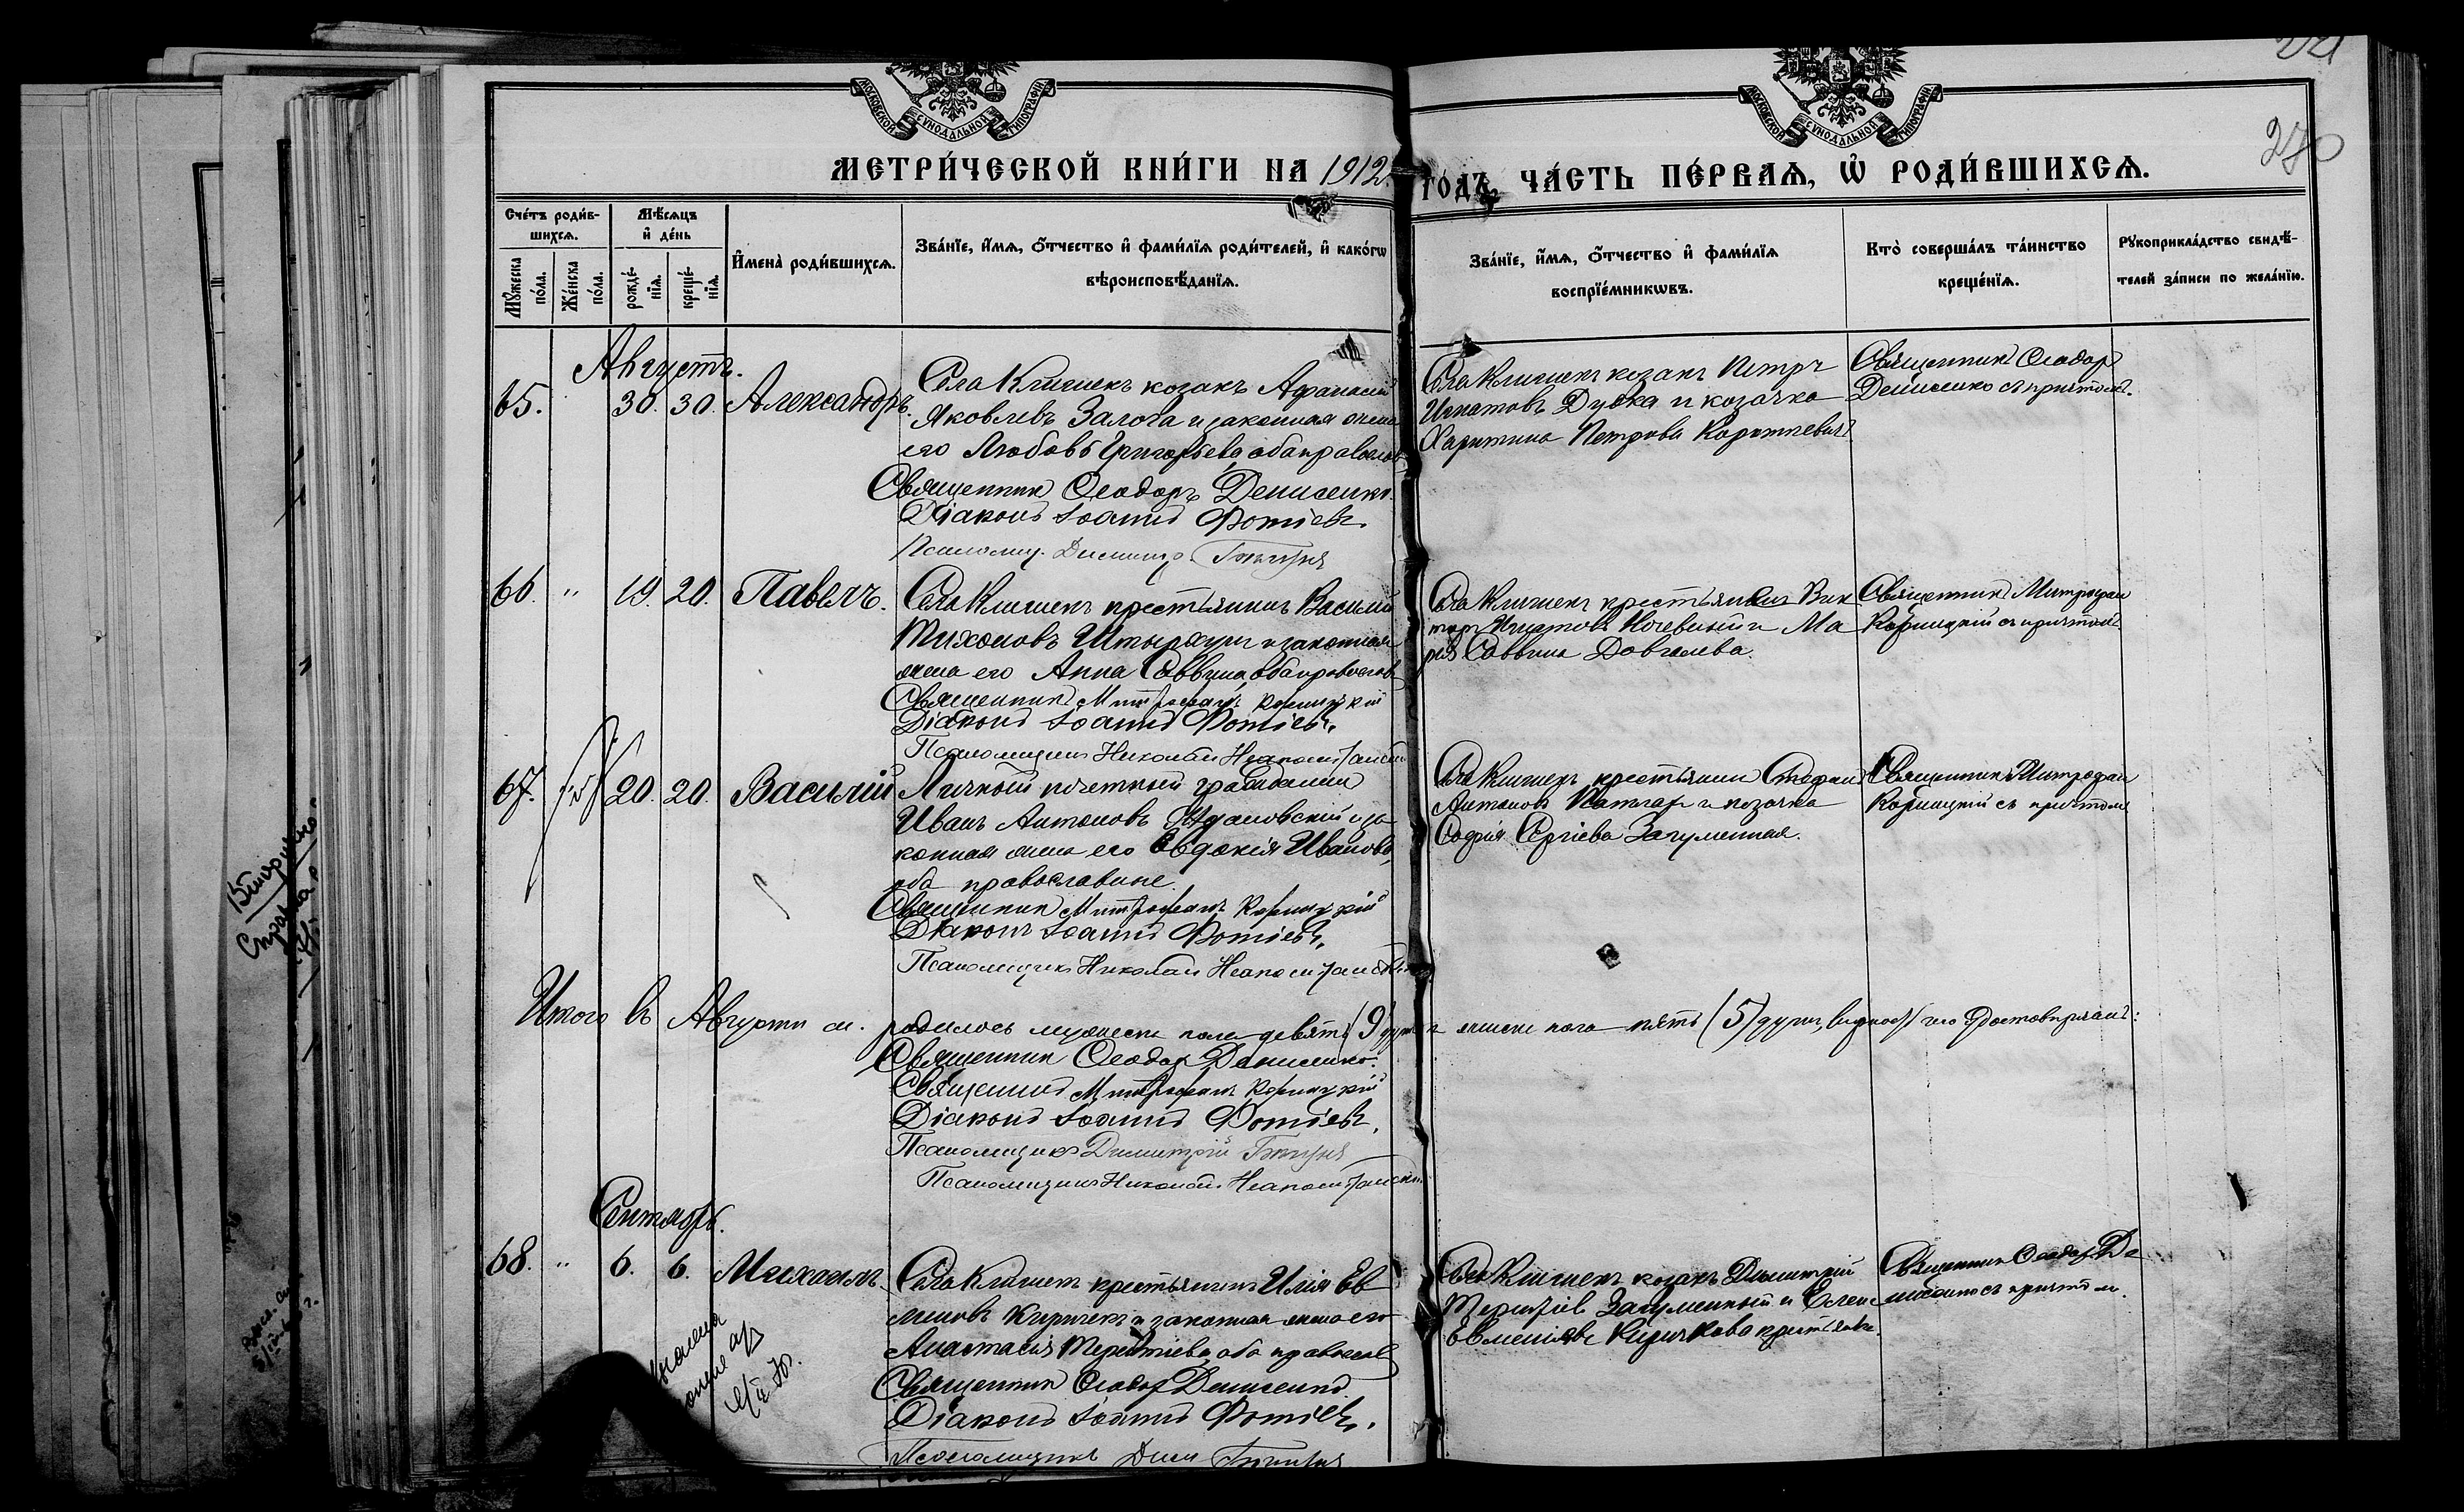 МОСКОВСКОЙ СУНОДАЛЬНОЙ ТИПОГРАФІИ
МОСКОВСКОЙ СУНОДАЛЬНОЙ ТИПОГРАФІИ
270
МЕТРИ́ЧЕСКОЙ КНИ́ГИ НА 1912 ГОДЪ, ЧА́СТЬ ПЕ́РВАѦ, Ѡ РОДИ́ВШИХСѦ.
Сче́тъ роди́в-
шихсѧ.
Мѣ́сѧцъ
и҆ де́нь
Мꙋ́жеска по́ла.
Же́нска по́ла.
рожде́-
нїѧ.
креще́-
нїѧ.
И҆мена̀ роди́вшихсѧ.
Зва́нїе, и҆́мѧ, ѻ҆́тчество и҆ фами́лїѧ роди́телей, и҆ како́гѡ
вѣроисповѣ́данїѧ.
Зва́нїе, и҆́мѧ, ѻ҆́тчество и҆ фами́лїѧ
воспрїе́мникѡвъ.
Кто̀ соверша́лъ та́инство
креще́нїѧ.
Рꙋкоприкла́дство свидѣ́-
телей за́писи по жела́нїю.
Августъ.
65. 30. 30. Александръ.
Села Клишекъ козакъ Афанасій
Яковлевъ Залога и законная жена
его Любовь Григорьева, оба православ
Священник Феодоръ Денисенко.
Діаконъ Іоаннъ Фотіевъ.
Псаломщ. Димитр.
Села Клишекъ козакъ Петръ
Игнатовъ Дудка и козачка
Харитина Петрова
Священникъ Феодор
Денисенко съ причтомъ.
66. " 19. 20. Павелъ.
Села Клишекъ крестьянинъ Василій
Тихоновъ и законная
жена его Анна Саввина, оба православ
Священникъ Митрофанъ Корицкій
Діаконъ Іоаннъ Фотіевъ.
Псаломщикъ Николай
Села Клишекъ крестьянинъ Вик
тор Игнатовъ и Ма
рія Саввина Довгалева.
Священникъ Митрофан
Корицкій съ причтомъ.
67. 20. 20. Василій
Личный почетный гражданин
Иванъ Антоновъ и за
конная жена его Евдокія Иванова,
оба православные.
Священник Митрофанъ Корицкій
Діаконъ Іоаннъ Фотіевъ.
Псаломщикъ Николай
Села Клишекъ крестьянин Стефан
Антонов и козачка
Софія Сергіева Загуменная.
Священникъ Митрофан
Корицкій съ причтом
Итого въ Августѣ м. родилось мужеска пола девять (9) душъ и женска пола пять (5) душъ,
Священник Феодор Денисенко.
Священникъ Митрофанъ Корицкій
Діаконъ Іоаннъ Фотіевъ.
Псаломщикъ Димитрій
Псаломщикъ Николай
Сентябрь.
68. " 6. 6. Михаилъ.
Села Клишекъ крестьянинъ Илія Ев
меновъ Киричекъ и законная жена его
Анастасія Терентіева, оба православ
Священник Феодор Денисенко
Діаконъ Іоаннъ Фотіевъ.
Псаломщикъ Дим
Села Клишекъ козакъ Димитрій
Терентіев Загуменный и Елена
Евменіева Киричкова крестьянка.
Священник Феодор Де
нисенко съ причтом.
Вторично